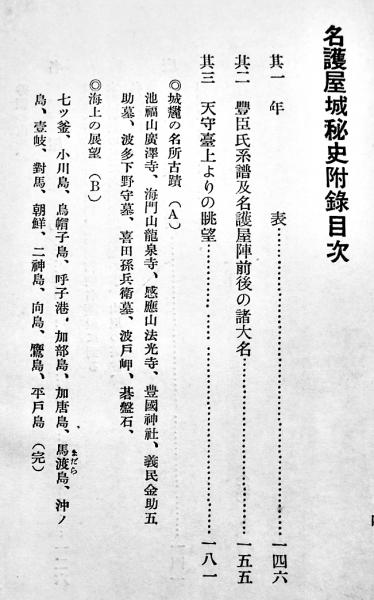 名護屋城秘史附錄目次
其一 年表……一四六
其二 豐臣氏系譜及名護屋陣前後の諸大名……一五五
其三 天守臺上よりの眺望……一八一
◎城趾の名所古蹟(A)
池福山廣澤寺、海門山龍泉寺、感應山法光寺、豊國神社、義民金助五
助墓、波多下野守墓、喜田孫兵衞墓、波戸岬、碁盤石、
◎海上の展望(B)
七ッ釜、小川島、烏帽子島、呼子港・加部島、加唐島、馬渡島、沖ノ
まだら
島、壹岐、對馬、朝鮮、二神島、向島、鷹島、平戸島(完)